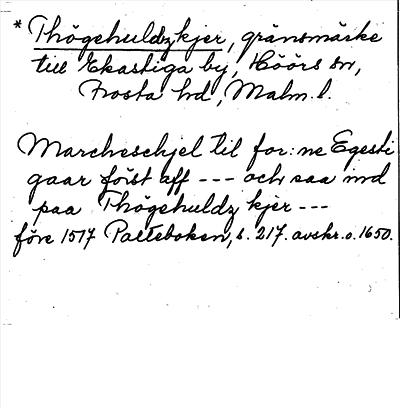 * Thögehuldzkjer, gränsmärke
till Ekastiga by, Höörs sn,
Frosta hd, Malm. l.
Marcheschjel til for:ne Egesti
gaar först aff --- och saa ind
paa Thögehuldz kjer ---
före 1517 Palteboken, s. 217. avskr. o. 1650.